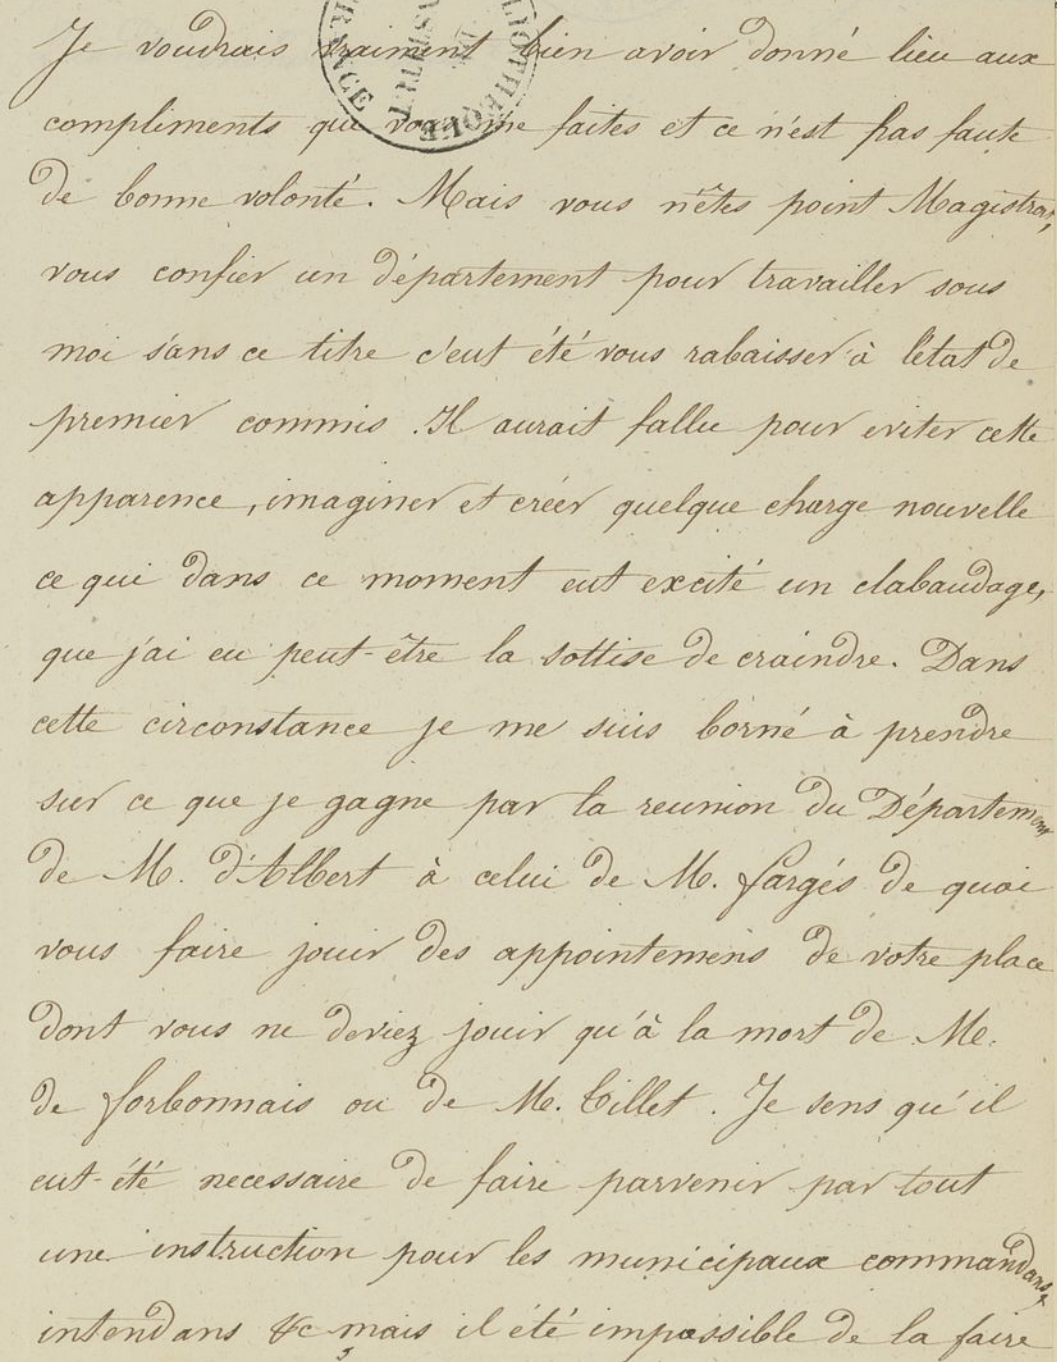 Je voudrais vraiment bien avoir donné lieu aux
compliments que vous me faites et ce n'est pas faute
de bonne volonté. Mais vous n'êtes point Magistrat,
vous confier un département pour travailler sous
moi sans ce titre c'eut été vous rabaisser à l'état de
premier commis. Il aurait fallu pour eviter cette
apparence, imaginer et créer quelque charge nouvelle
ce qui dans ce moment eut excité un clabaudage,
que j'ai eu peut-être la sottise de craindre. Dans
cette circonstance je me suis borné à prendre
sur ce que je gagne par la reunion du Département
de M. d'Albert à celui de M. fargés de quoi
vous faire jouir des appointemens de votre place
dont vous ne deviez jouir qu'à la mort de M.
de forbonnais ou de M. Tillet. Je sens qu'il
eut-été necessaire de faire parvenir par tout
une instruction pour les municipaux commandans,
intendans &c mais il été impossible de la faire